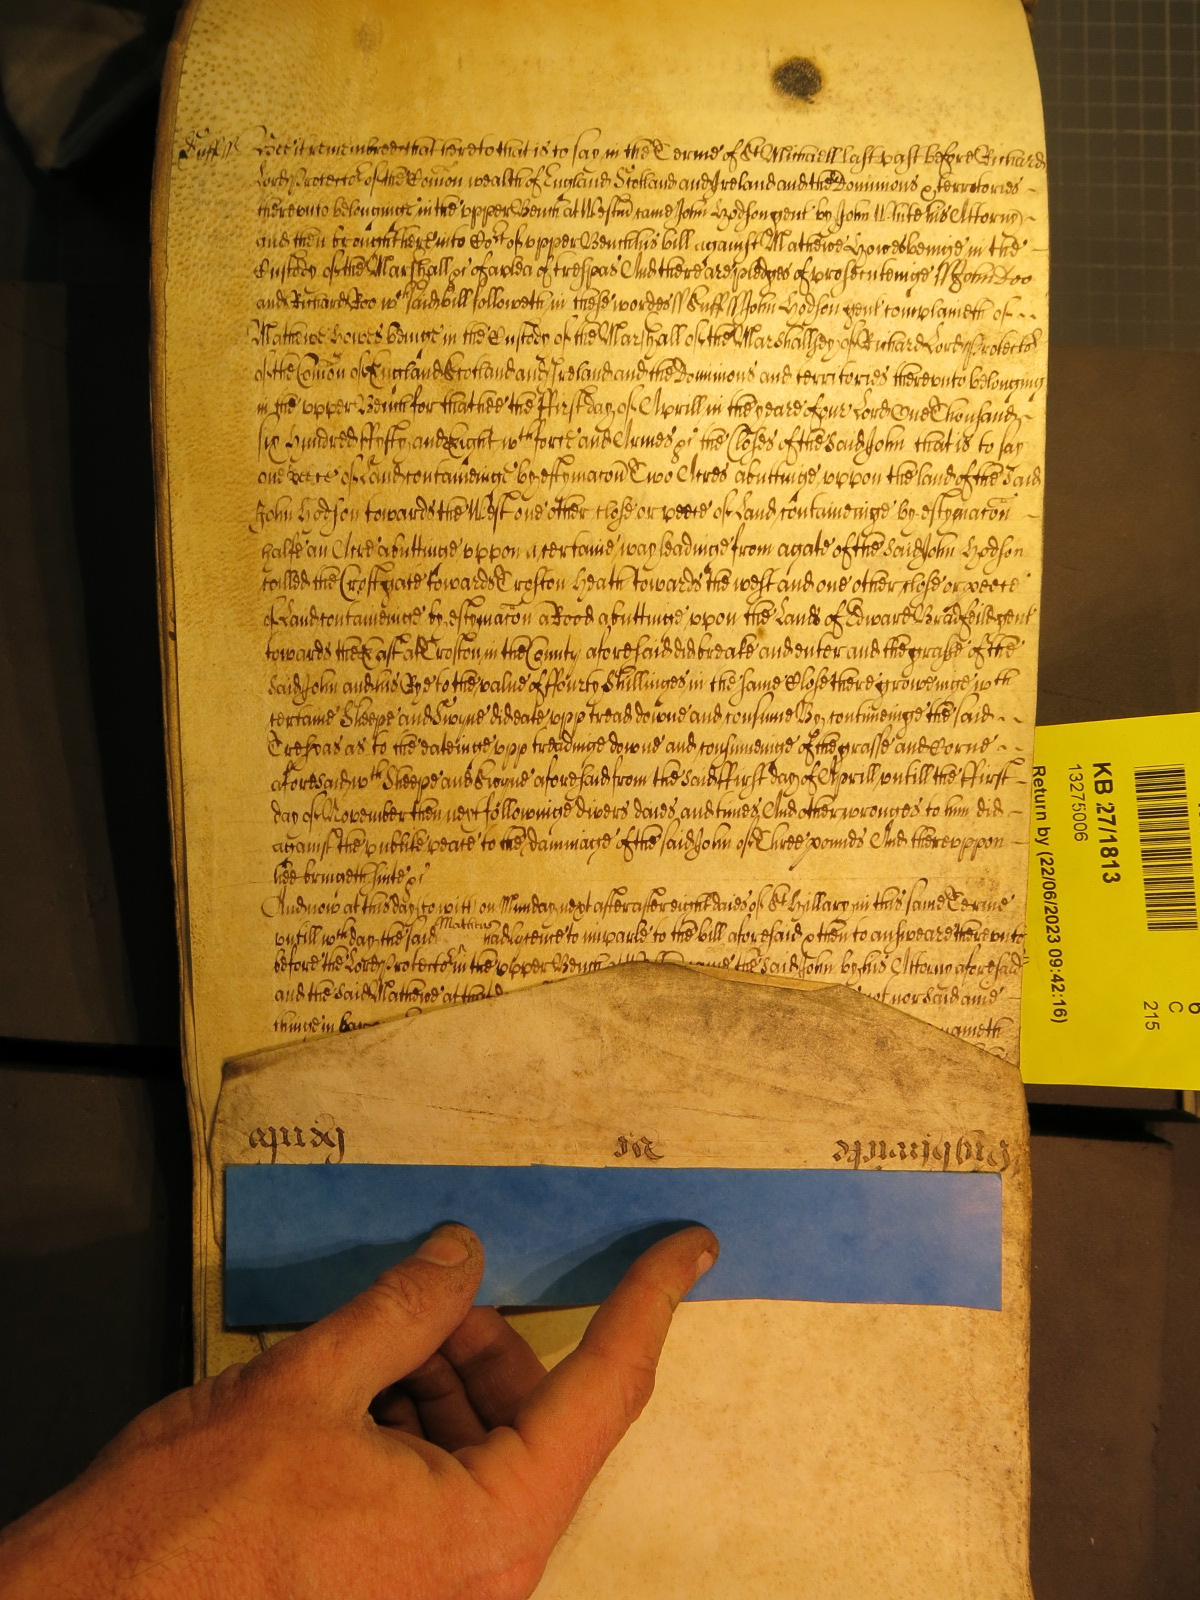 Suff ss Bee it remembred that heretofore that is to say in the Terme of St Michaell last past before Richard
Lord Protector of the Com̄on wealth of England Scotland and Ireland and the Dominions & territories
thereunto belonginge in the upper Bench at Westm̄ came John Hodson gent by John White his Attorny
and then brought here into Cort of upper Bench his bill against Mathewe Howes beinge in the
Custody of the Marshall &c of a plea of trespas And there are pledges of prosecuteinge ss John Doo
and Richard Roo wch said bill followeth in these wordes ss Suff ss John Hodson gent complaineth of
Mathewe Howes beinge in the Custody of the Marshall of the Marshallsey of Richard Lord Protector
of the Com̄on of England Scotland and Ireland and the Dominions and territories thereunto belonging
in the upper Bench for that hee the ffirst day of Aprill in the yeare of our Lord One Thousand
six Hundred ffyfty and Eight wth force and Armes &c the Closes of the said John that is to say
one peece of Land contameinge by estymacon̄ Two Acres abuttinge uppon the land of the said
John Hodson towards the West one other close or peece of Land contameinge by estymacon̄
halfe an Acre abuttinge uppon a certaine way leadinge from a gate of the said John Hodson
called the Croft gate towards Troston Heath towards the west and one other close or peece
of Land contameinge by estymacon̄ a Rood abuttinge uppon the Lands of Edward Bradfeild gent
towards the East at Troston in the County aforesaid did breake and enter and the grasse of the
said John and his Rye to the value of ffourty Shillinges in the same Close there groweinge wth
certaine Sheepe and Swyne did eate upp tread downe and consume By continueinge the said
Trespas as to the eateinge upp treadinge downe and consumeinge of the grasse and Corne
aforesaid wth Sheepe and Swyne aforesaid from the said ffirst day of Aprill untill the ffirst
day of November then next followinge divers daies and times And other wronges to him did
against the publike peace to the dammage of the said John of Three pounds And thereuppon
hee bringeth suite &c
And now at this day to witt on Munday next after eight daies of St Hillary in this same Terme
untill wch day the said Mathew had licence to imparle to the bill aforesaid & then to answeare thereunto
before the Lord Protector in the upper Bench at came the said John by his Attorny aforesaid
and the said Mathewe at that d not nor said anie
thinge in barr
KB 27/1813
13275006
Return by (22/06/2023 09:42:16)
C
215